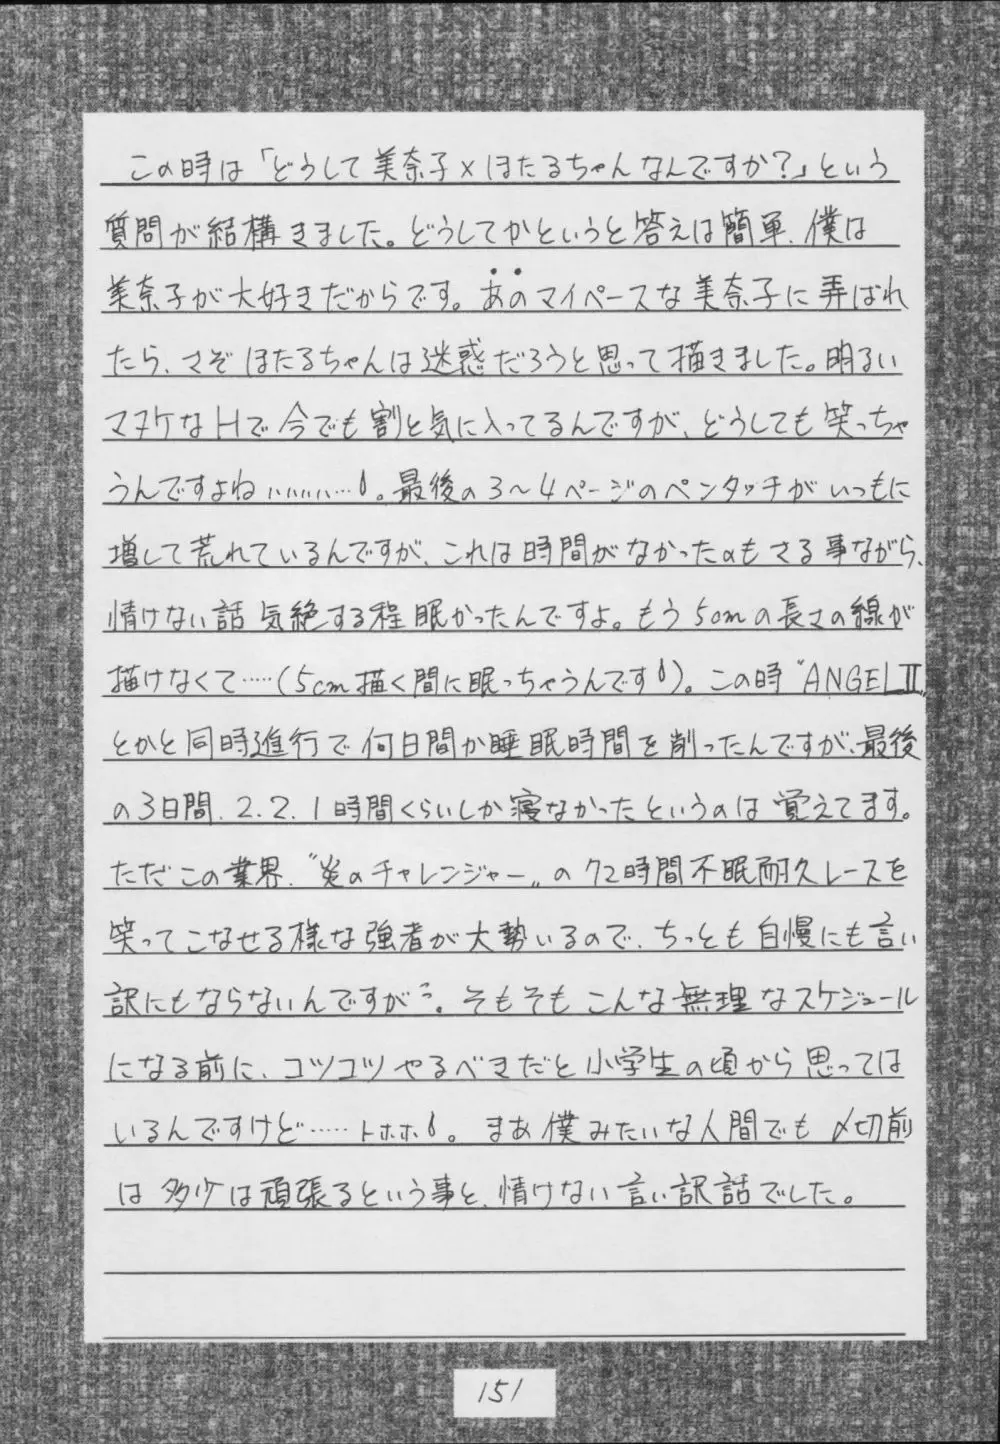 この時は「どうして美奈子×ほたるちゃんなんですか？」という
質問が結構きました。どうしてかというと答えは簡単、僕は
美奈子が大好きだからです。あのマイペースな美奈子に弄ばれ
たら、さぞほたるちゃんは迷惑だろうと思って描きました。明るい
マヌケなHで今でも割と気に入ってるんですが、どうしても笑っちゃ
うんですよねぃぃぃぃぃ…。最後の3～4ページのペンタッチがいつもに
増して荒れているんですが、これは時間がなかったのもさる事ながら、
情けない話気絶する程眠かったんですよ。もう5cmの長さの線が
描けなくて……(5cm描く間に眠っちゃうんです)。この時〝ANGELⅡ〟
とかと同時進行で何日間か睡眠時間を削ったんですが、最後
の3日間、2、2、1時間くらいしか寝なかったというのは覚えてます。
ただこの業界、〝炎のチャレンジャー〟の72時間不眠耐久レースを
笑ってこなせる様な強者が大勢いるので、ちっとも自慢にも言い
訳にもならないんですが。そもそもこんな無理なスケジュール
になる前に、コツコツやるべきだと小学生の頃から思っては
いるんですけど……トホホ。まあ僕みたいな人間でも〆切前
は多少は頑張るという事と、情けない言い訳話でした。
151